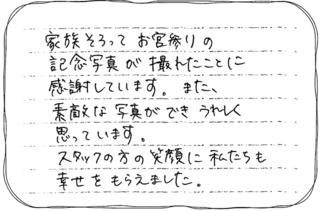 家族そろって お宮参りの
記念写真が 撮れたことに
感謝しています。また、
素敵な 写真が でき うれしく
思っています。
スタッフの方の 笑顔に 私たちも
幸せを もらえました。